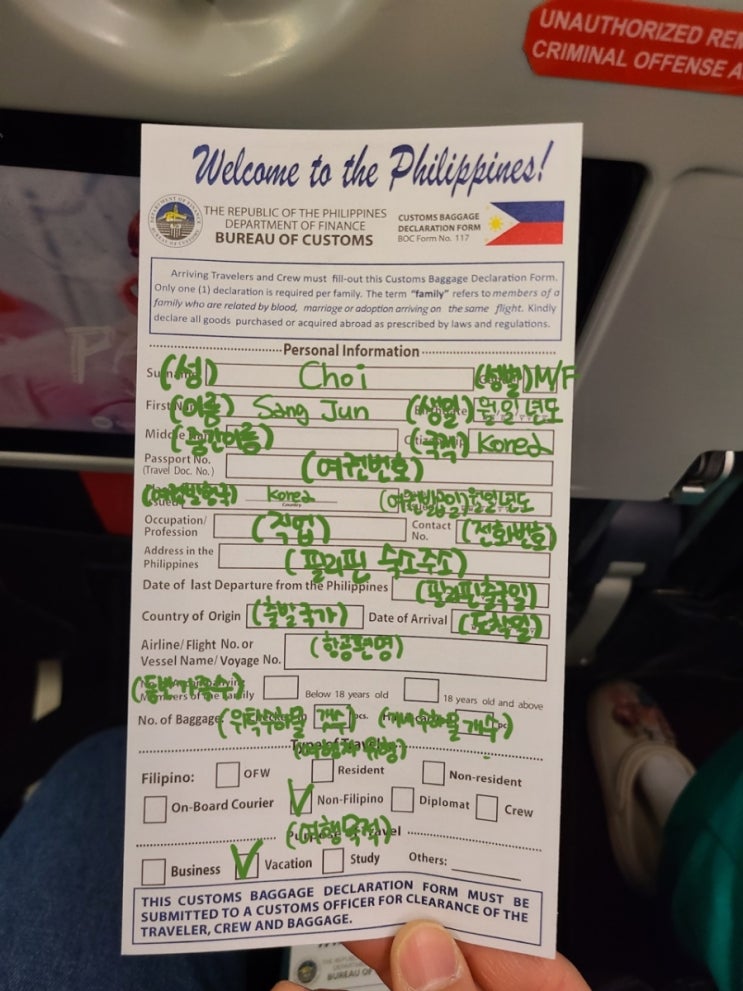 UNAUTHORIZED REM
CRIMINAL OFFENSE A
Welcome to the Philippines!
THE REPUBLIC OF THE PHILIPPINES
DEPARTMENT OF FINANCE
BUREAU OF CUSTOMS
CUSTOMS BAGGAGE
DECLARATION FORM
BOC Form No. 117
Arriving Travelers and Crew must fill-out this Customs Baggage Declaration Form.
Only one (1) declaration is required per family. The term "family" refers to members of a
family who are related by blood, marriage or adoption arriving on the same flight. Kindly
declare all goods purchased or acquired abroad as prescribed by laws and regulations.
Personal Information
(성) Choi (성별) M/F
First (이름) Sang Jun (생일) 월 일 년도
Middle (중간이름) (국적) Korea
Passport No. (여권번호)
(Travel Doc. No.)
(여권발행국) Korea (여권발급일) 월 일 년도
Country
Occupation/ (직업) Contact (전화번호)
Profession No.
Address in the (필리핀 숙소주소)
Philippines
Date of last Departure from the Philippines (필리핀출국일)
Country of Origin (출발국가) Date of Arrival (도착일)
Airline/Flight No. or (항공편명)
Vessel Name/Voyage No.
(동반가족수)
Members of the family Below 18 years old 18 years old and above
No. of Baggage (위탁수하물 갯수) pcs. (기내수하물 갯수)
Type of Traveler
(여행자 유형)
Filipino: OFW Resident Non-resident
On-Board Courier V Non-Filipino Diplomat Crew
Purpose of Travel
(여행목적)
Business V Vacation Study Others:
THIS CUSTOMS BAGGAGE DECLARATION FORM MUST BE
SUBMITTED TO A CUSTOMS OFFICER FOR CLEARANCE OF THE
TRAVELER, CREW AND BAGGAGE.
BUREAU OF